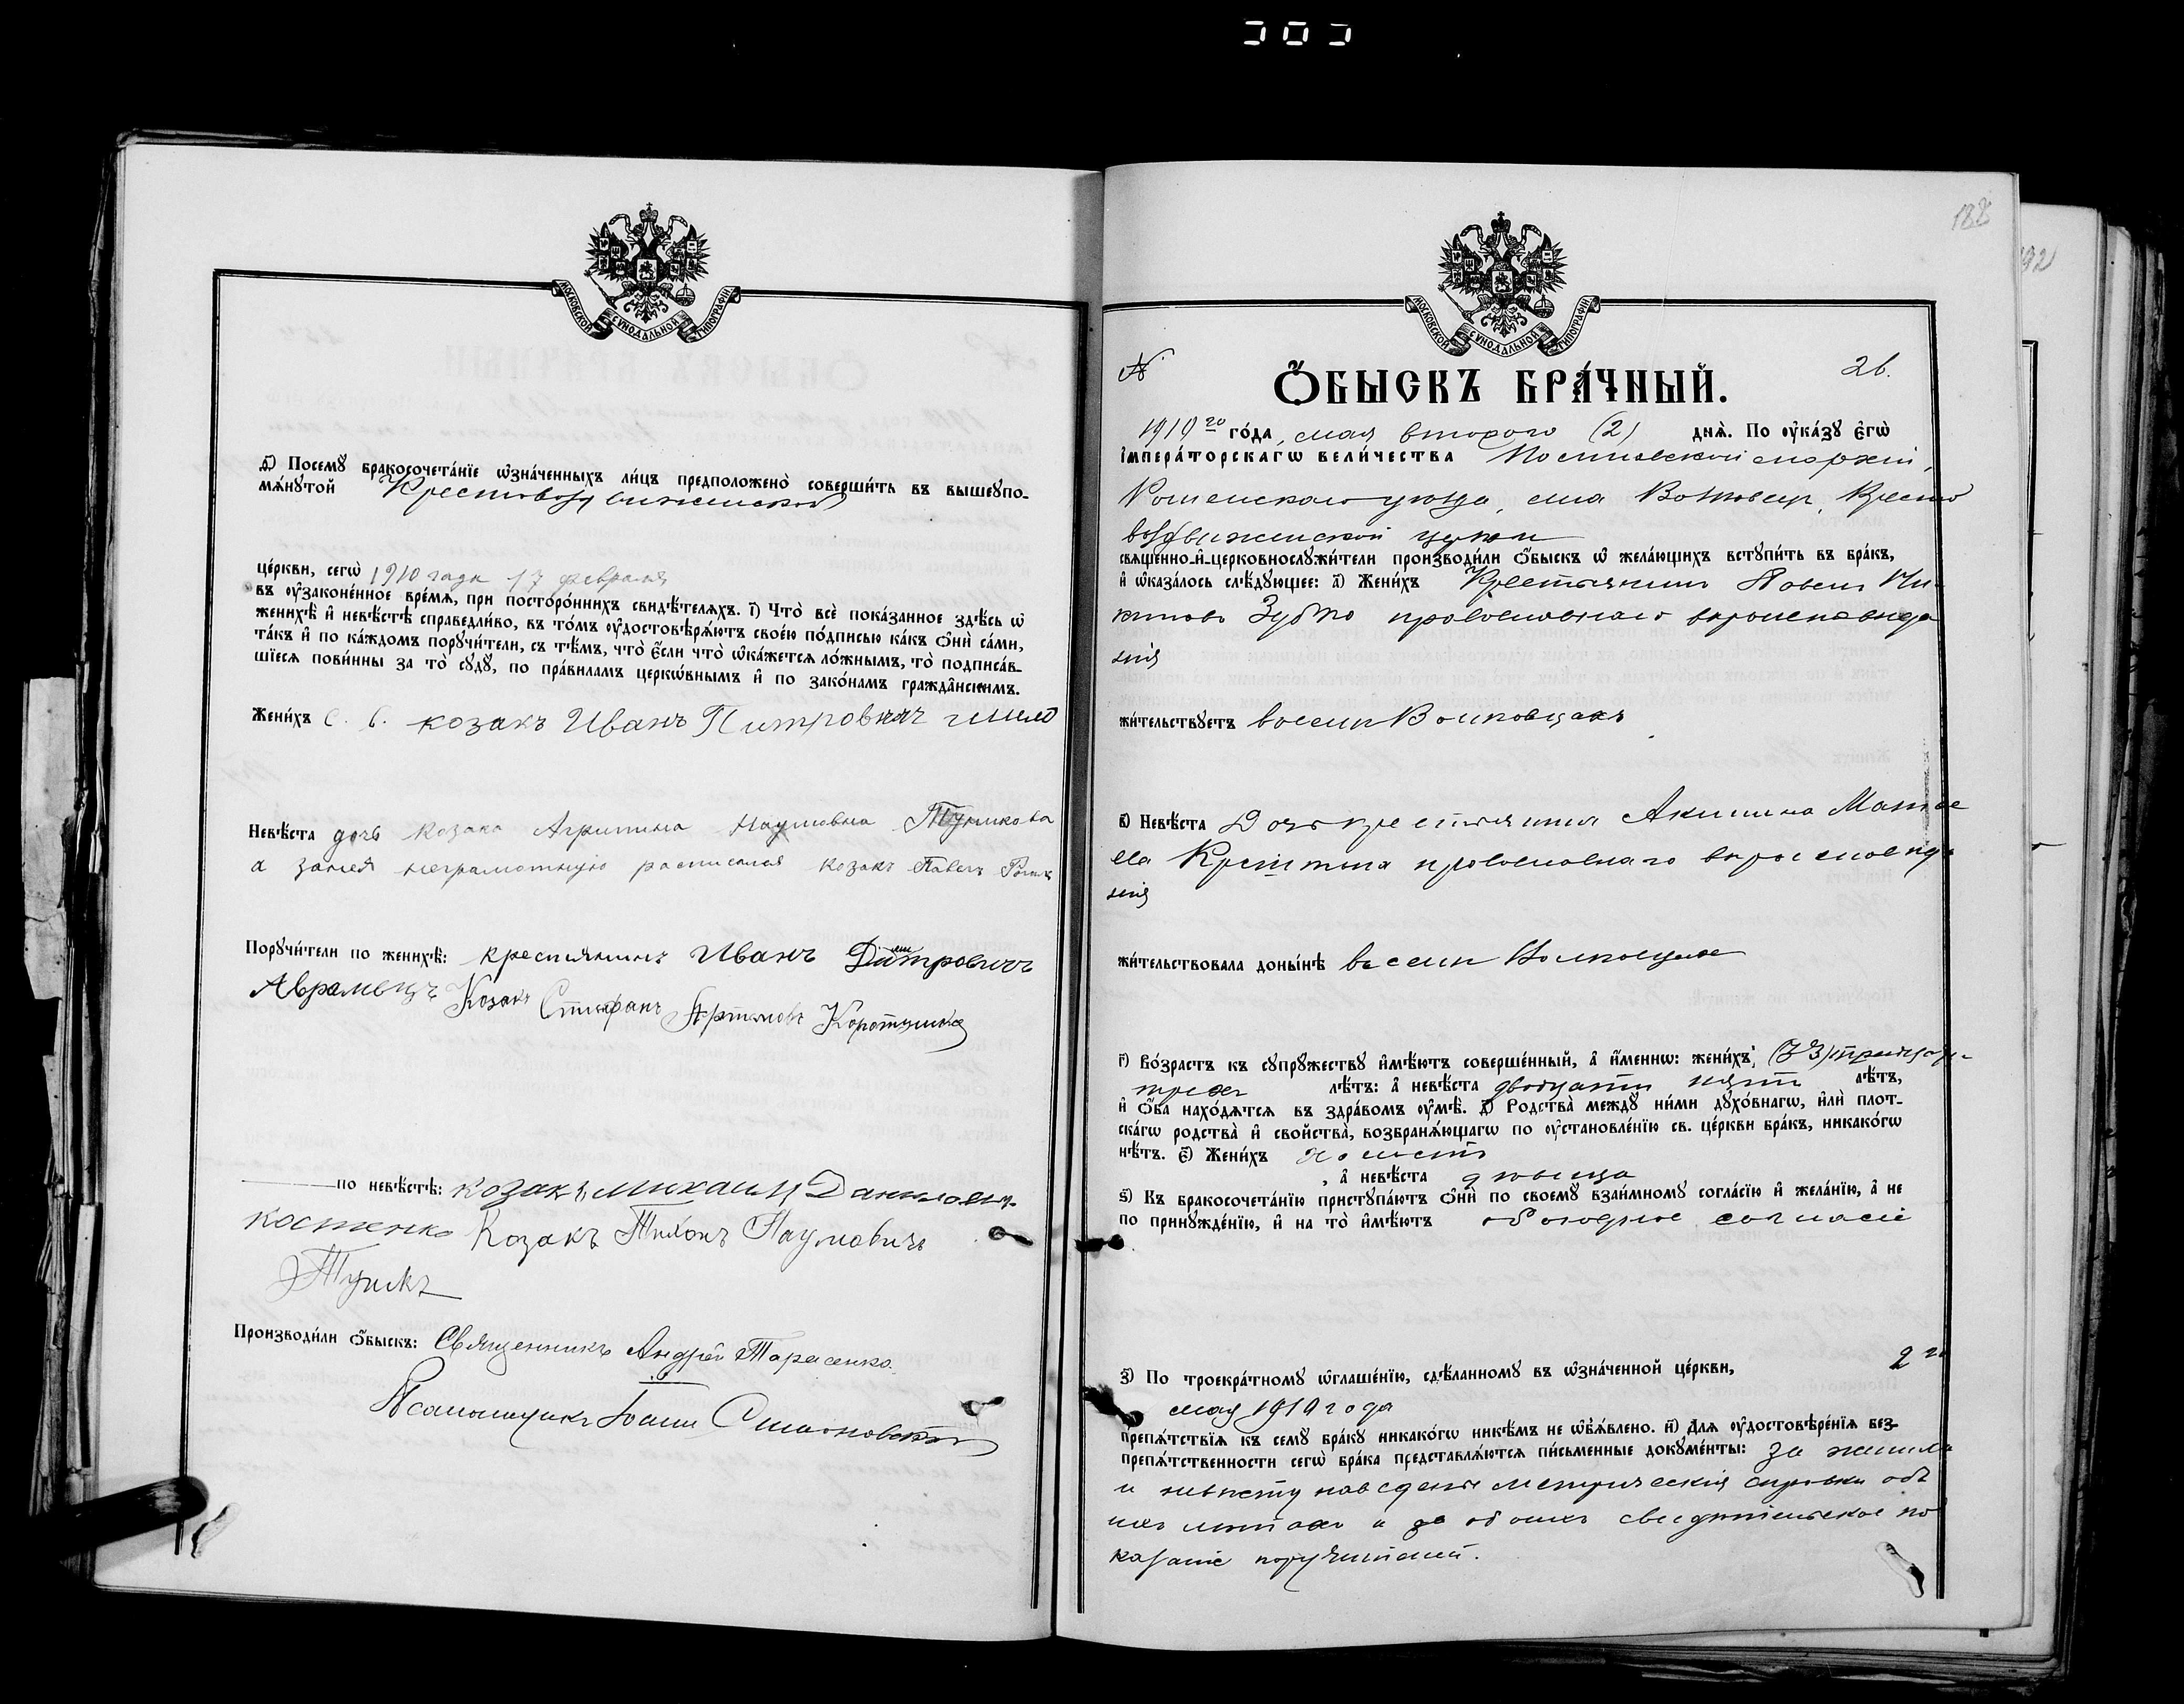 МОСКОВСКОЙ СѴНОДАЛЬНОЙ ТИПОГРАФІИ
ѳ҃) Посемꙋ бракосочета́нїе ѡ҆зна́ченныхъ ли́цъ предположено̀ соверши́ть въ вышеꙋпо-
мѧ́нꙋтой Крестовоздвиженской
це́ркви, сегѡ̀ 1910 года 17 февраля
въ ᲂу҆зако́ненное вре́мѧ, при посторо́ннихъ свидѣ́телѧхъ. і҃) Что̀ всѐ пока́занное здѣ́сь ѡ҆
женихѣ̀ и҆ невѣ́стѣ справедли́во, въ то́мъ ᲂу҆достовѣрѧ́ютъ свое́ю по́дписью ка́къ ѻ҆нѝ са́ми,
та́къ и҆ по ка́ждомъ порꙋчи́тели, съ тѣ́мъ, что̀ є҆́сли что̀ ѡ҆ка́жетсѧ ло́жнымъ, то̀ подписа́в-
шїесѧ пови́нны за то̀ сꙋдꙋ̀, по пра́виламъ церко́внымъ и҆ по зако́намъ гражда́нскимъ.
Жени́хъ С. в. козакъ Иванъ Питровичъ
Невѣ́ста дочь козака Агрипина Наумовна Тупикова
а занея неграмотную расписался козакъ Павелъ
Порꙋчи́тели по женихѣ̀: крестьянинъ Иванъ Димитровичъ
Авраменъ Козакъ Стефанъ Артемовъ Коротушка
по невѣ́стѣ: козакъ михаилъ Данилович
костенко Козакъ Тихонъ Наумовичъ
Производи́ли ѻ҆́быскъ: Священникъ Андрей Тарасенко.
Псаломщикъ Іоаннъ
188
192
МОСКОВСКОЙ СѴНОДАЛЬНОЙ ТИПОГРАФІИ
№ 26.
Ѻ҆́БЫСКЪ БРА́ЧНЫЙ.
1910го го́да, мая второго (2) днѧ̀. По ᲂу҆ка́зꙋ є҆гѡ̀
и҆мпера́торскагѡ вели́чества Полтавской епархіи,
Роменскаго уѣзда, села Волковец, Кресто
воздвиженской церкви
свѧще́нно-и҆-церковнослꙋжи́тели производи́ли ѻ҆́быскъ ѡ҆ жела́ющихъ встꙋпи́ть въ бра́къ,
и҆ ѡ҆каза́лось слѣ́дꙋющее: а҃) Жени́хъ Крестьянинъ Павелъ Ни-
китовъ Зубко православнаго вѣроисповѣда
нія
жи́тельствꙋетъ въ селѣ Волковцахъ
в҃) Невѣ́ста Дочь крестьянина Акилина Матѳе
ева православнаго вѣроисповѣда
нія
жи́тельствовала доны́нѣ въ селѣ Волковцахъ
г҃) Во́зрастъ къ сꙋпрꙋ́жествꙋ и҆мѣ́ютъ соверше́нный, а҆ и҆́меннѡ: жени́хъ (33) тридцати
трехъ лѣ́тъ: а҆ невѣ́ста двадцати пяти лѣ́тъ,
и҆ ѻ҆́ба нахо́дѧтсѧ въ здра́вомъ ᲂу҆мѣ̀. д҃) Родства̀ междꙋ̀ ни́ми дꙋхо́внагѡ, и҆лѝ плот-
ска́гѡ родства̀ и҆ свойства̀, возбранѧ́ющагѡ по ᲂу҆становле́нїю св. це́ркви бра́къ, никако́гѡ
нѣ́тъ. є҃) Жени́хъ холостъ
, а҆ невѣ́ста дѣвица
ѕ҃) Къ бракосочета́нїю пристꙋпа́ютъ ѻ҆нѝ по своемꙋ̀ взаи́мномꙋ согла́сїю и҆ жела́нїю, а҆ не
по принꙋжде́нїю, и҆ на то̀ и҆мѣ́ютъ обоюдное согласіе
з҃) По троекра́тномꙋ ѡ҆глаше́нїю, сдѣ́ланномꙋ въ ѡ҆зна́ченной це́ркви, 2го
мая 1910 года
препѧ́тствїѧ къ семꙋ̀ бра́кꙋ никако́гѡ никѣ́мъ не ѡ҆б̾ѧ́влено. и҃) Длѧ ᲂу҆достовѣре́нїѧ без-
препѧ́тственности сегѡ̀ бра́ка представлѧ́ютсѧ пи́сьменные докꙋме́нты: за жениха
и невѣсту наведены метрическія справки объ
ихъ лѣтахъ и за обоихъ свидѣтельское по
казаніе поручителей.